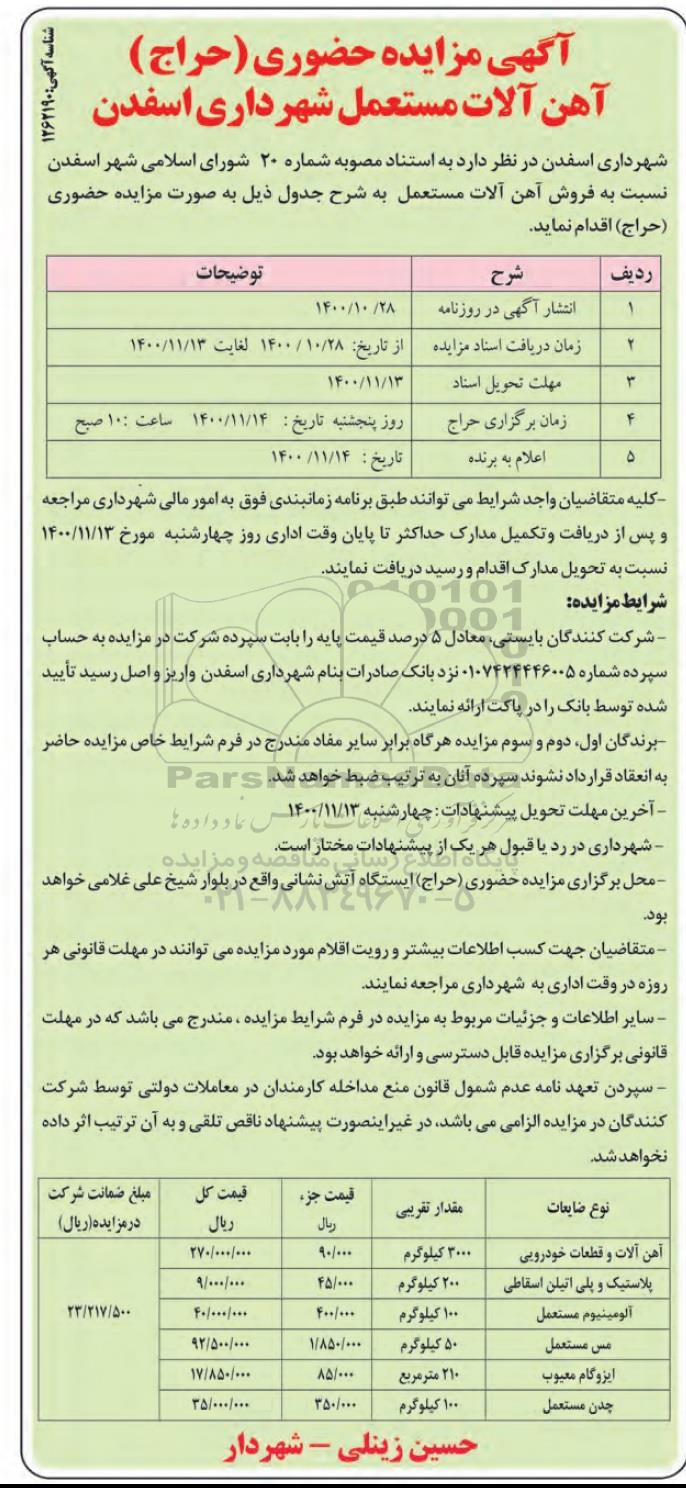 شناسه آگهی: ۱۲۶۲۱۹۰
آگهی مزایده حضوری (حراج)
آهن آلات مستعمل شهرداری اسفدن
شهرداری اسفدن در نظر دارد به استناد مصوبه شماره ۲۰ شورای اسلامی شهر اسفدن
نسبت به فروش آهن آلات مستعمل به شرح جدول ذیل به صورت مزایده حضوری
(حراج) اقدام نماید.
ردیف شرح توضیحات
۱ انتشار آگهی در روزنامه ۱۴۰۰/۱۰/۲۸
۲ زمان دریافت اسناد مزایده از تاریخ: ۱۴۰۰/۱۰/۲۸ لغایت ۱۴۰۰/۱۱/۱۳
۳ مهلت تحویل اسناد ۱۴۰۰/۱۱/۱۳
۴ زمان برگزاری حراج روز پنجشنبه تاریخ: ۱۴۰۰/۱۱/۱۴ ساعت :۱۰ صبح
۵ اعلام به برنده تاریخ: ۱۴۰۰/۱۱/۱۴
-کلیه متقاضیان واجد شرایط می توانند طبق برنامه زمانبندی فوق به امور مالی شهرداری مراجعه
و پس از دریافت وتکمیل مدارک حداکثر تا پایان وقت اداری روز چهارشنبه مورخ ۱۴۰۰/۱۱/۱۳
نسبت به تحویل مدارک اقدام و رسید دریافت نمایند.
شرایط مزایده:
- شرکت کنندگان بایستی، معادل ۵ درصد قیمت پایه را بابت سپرده شرکت در مزایده به حساب
سپرده شماره ۰۱۰۷۴۲۴۴۴۶۰۰۵ نزد بانک صادرات بنام شهرداری اسفدن واریز و اصل رسید تأیید
شده توسط بانک را در پاکت ارائه نمایند.
-برندگان اول، دوم و سوم مزایده هرگاه برابر سایر مفاد مندرج در فرم شرایط خاص مزایده حاضر
به انعقاد قرارداد نشوند سپرده آنان به ترتیب ضبط خواهد شد.
ParsNamadData
- آخرین مهلت تحویل پیشنهادات: چهارشنبه ۱۴۰۰/۱۱/۱۳
- شهرداری در رد یا قبول هر یک از پیشنهادات مختار است.
پایگاه اطلاع رسانی مناقصه و مزایده
- محل برگزاری مزایده حضوری (حراج) ایستگاه آتش نشانی واقع در بلوار شیخ علی غلامی خواهد
بود.
۰۲۱-۸۸۳۴۹۶۷۰-۵
- متقاضیان جهت کسب اطلاعات بیشتر و رویت اقلام مورد مزایده می توانند در مهلت قانونی هر
روزه در وقت اداری به شهرداری مراجعه نمایند.
- سایر اطلاعات و جزئیات مربوط به مزایده در فرم شرایط مزایده ، مندرج می باشد که در مهلت
قانونی برگزاری مزایده قابل دسترسی و ارائه خواهد بود.
- سپردن تعهد نامه عدم شمول قانون منع مداخله کارمندان در معاملات دولتی توسط شرکت
کنندگان در مزایده الزامی می باشد، در غیراینصورت پیشنهاد ناقص تلقی و به آن ترتیب اثر داده
نخواهد شد.
نوع ضایعات مقدار تقریبی قیمت جزء، ریال قیمت کل ریال مبلغ ضمانت شرکت درمزایده(ریال)
آهن آلات و قطعات خودرویی ۳۰۰۰ کیلوگرم ۹۰/۰۰۰ ۲۷۰/۰۰۰/۰۰۰ ۲۳/۲۱۷/۵۰۰
پلاستیک و پلی اتیلن اسقاطی ۲۰۰ کیلوگرم ۴۵/۰۰۰ ۹/۰۰۰/۰۰۰
آلومینیوم مستعمل ۱۰۰ کیلوگرم ۴۰۰/۰۰۰ ۴۰/۰۰۰/۰۰۰
مس مستعمل ۵۰ کیلوگرم ۱/۸۵۰/۰۰۰ ۹۲/۵۰۰/۰۰۰
ایزوگام معیوب ۲۱۰ مترمربع ۸۵/۰۰۰ ۱۷/۸۵۰/۰۰۰
چدن مستعمل ۱۰۰ کیلوگرم ۳۵۰/۰۰۰ ۳۵/۰۰۰/۰۰۰
حسین زینلی - شهردار